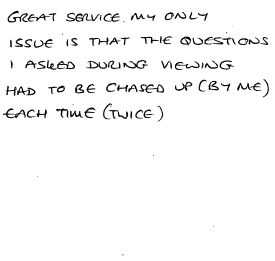 GREAT SERVICE. MY ONLY
ISSUE IS THAT THE QUESTIONS
I ASKED DURING VIEWING
HAD TO BE CHASED UP (BY ME)
EACH TIME (TWICE)